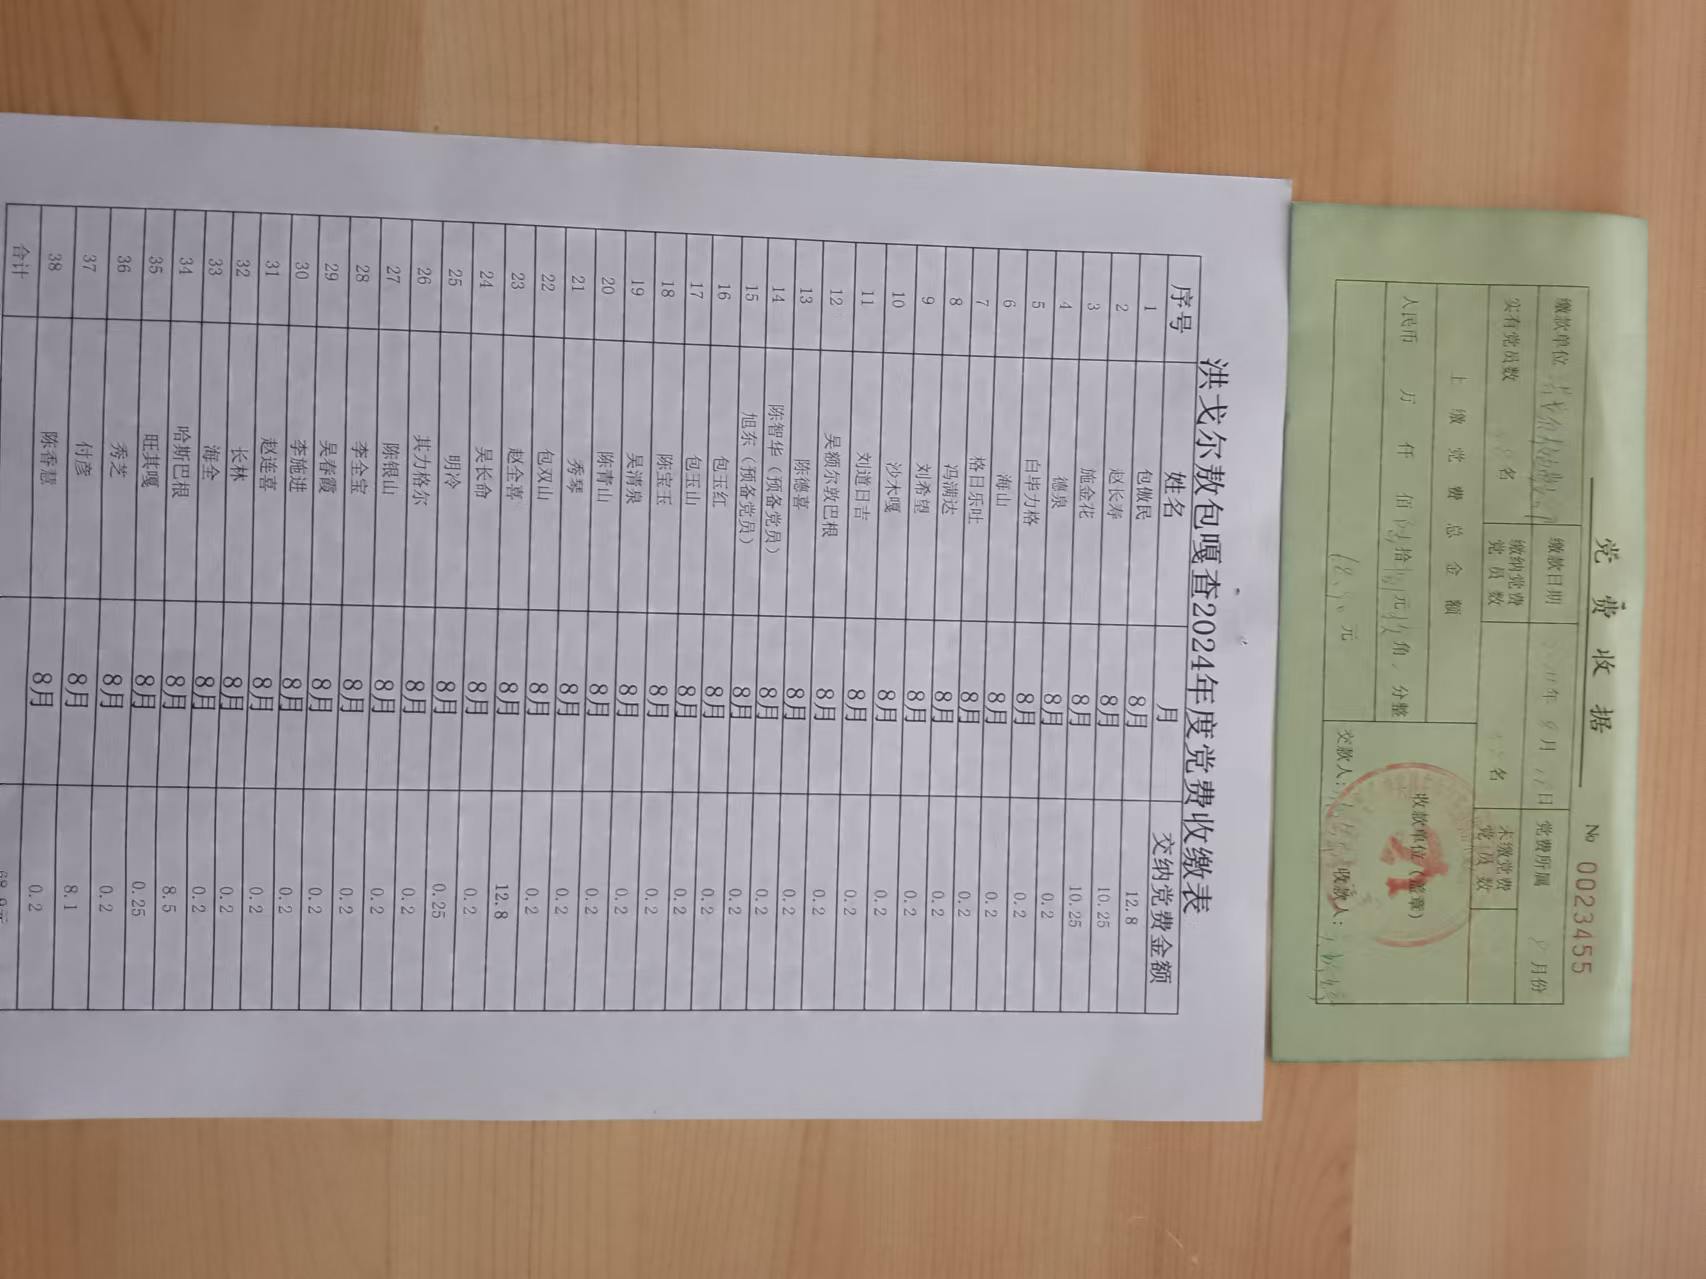 党费收据
№ 0023455
缴款单位
缴款日期 年 月 日 党费所属 月份
实有党员数 名 缴纳党费党员数 名 未缴党费党员数
上缴党费总金额
收款单位(盖章)
人民币 万 仟 佰 拾 元 角 分整
元
交款人: 收款人:
洪戈尔敖包嘎查2024年度党费收缴表
序号 姓名 月 交纳党费金额
1 包傲民 8月 12.8
2 赵长寿 8月 10.25
3 施金花 8月 10.25
4 德泉 8月 0.2
5 白毕力格 8月 0.2
6 海山 8月 0.2
7 格日乐吐 8月 0.2
8 冯满达 8月 0.2
9 刘希望 8月 0.2
10 沙木嘎 8月 0.2
11 刘道日吉 8月 0.2
12 吴额尔敦巴根 8月 0.2
13 陈德喜 8月 0.2
14 陈智华(预备党员) 8月 0.2
15 旭东(预备党员) 8月 0.2
16 包玉红 8月 0.2
17 包玉山 8月 0.2
18 陈宝玉 8月 0.2
19 吴清泉 8月 0.2
20 陈青山 8月 0.2
21 秀琴 8月 0.2
22 包双山 8月 0.2
23 赵全喜 8月 12.8
24 吴长命 8月 0.2
25 明冷 8月 0.25
26 其力格尔 8月 0.2
27 陈银山 8月 0.2
28 李全宝 8月 0.2
29 吴春霞 8月 0.2
30 李施进 8月 0.2
31 赵连喜 8月 0.2
32 长林 8月 0.2
33 海全 8月 0.2
34 哈斯巴根 8月 8.5
35 旺其嘎 8月 0.25
36 秀芝 8月 0.2
37 付彦 8月 8.1
38 陈香慧 8月 0.2
合计